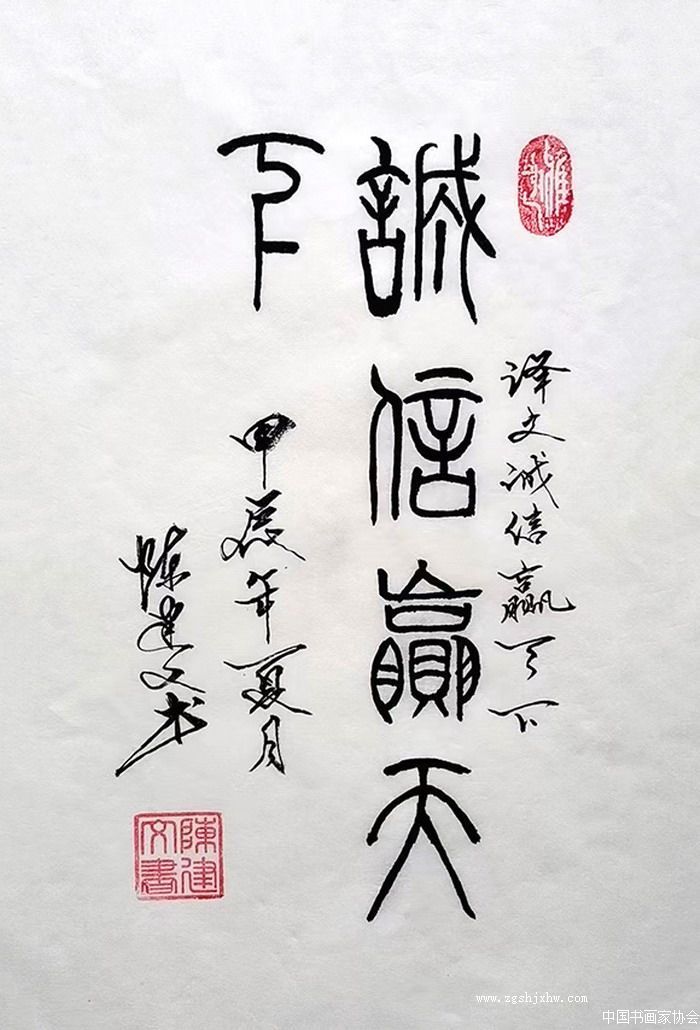 誠信贏天
下
译文诚信赢天下
甲辰年夏月
陈建文书
陳建文書
www.zgshjxhw.com
中国书画家协会